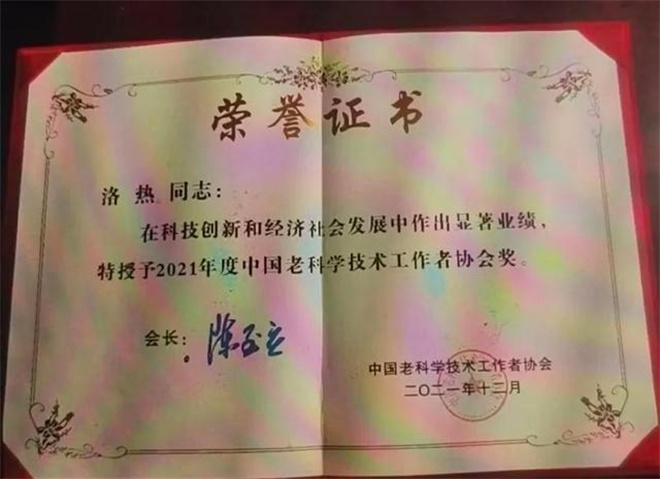 荣誉证书
洛热同志：
在科技创新和经济社会发展中作出显著业绩，
特授予2021年度中国老科学技术工作者协会奖。
会长：陈至立
中国老科学技术工作者协会
二〇二一年十二月